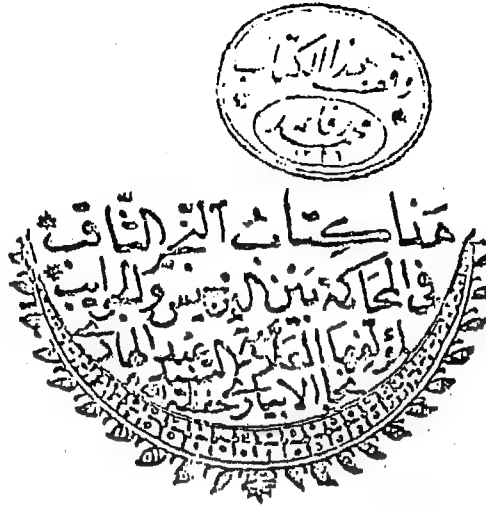 وقف هذا الكتاب
هذا كتاب النجم الثاقب
في المحاكمة بين البرجيس والجوائب
لمؤلفها العلامة السيد عبد الهادي
نجا الابياري